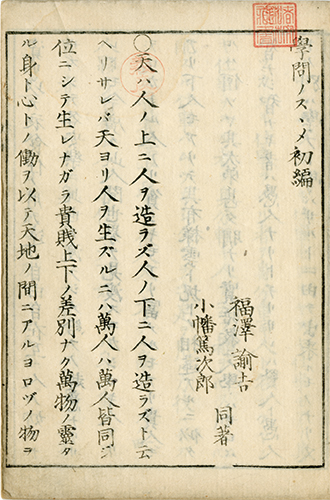 學問ノスヽメ初編
福澤諭吉
小幡篤次郎
同著
○天ハ人ノ上ニ人ヲ造ラズ人ノ下ニ人ヲ造ラズト云
ヘリサレバ天ヨリ人ヲ生ズルニハ萬人ハ萬人皆同ジ
位ニシテ生レナガラ貴賤上下ノ差別ナク萬物ノ靈タ
ル身ト心トノ働ヲ以テ天地ノ間ニアルヨロヅノ物ヲ